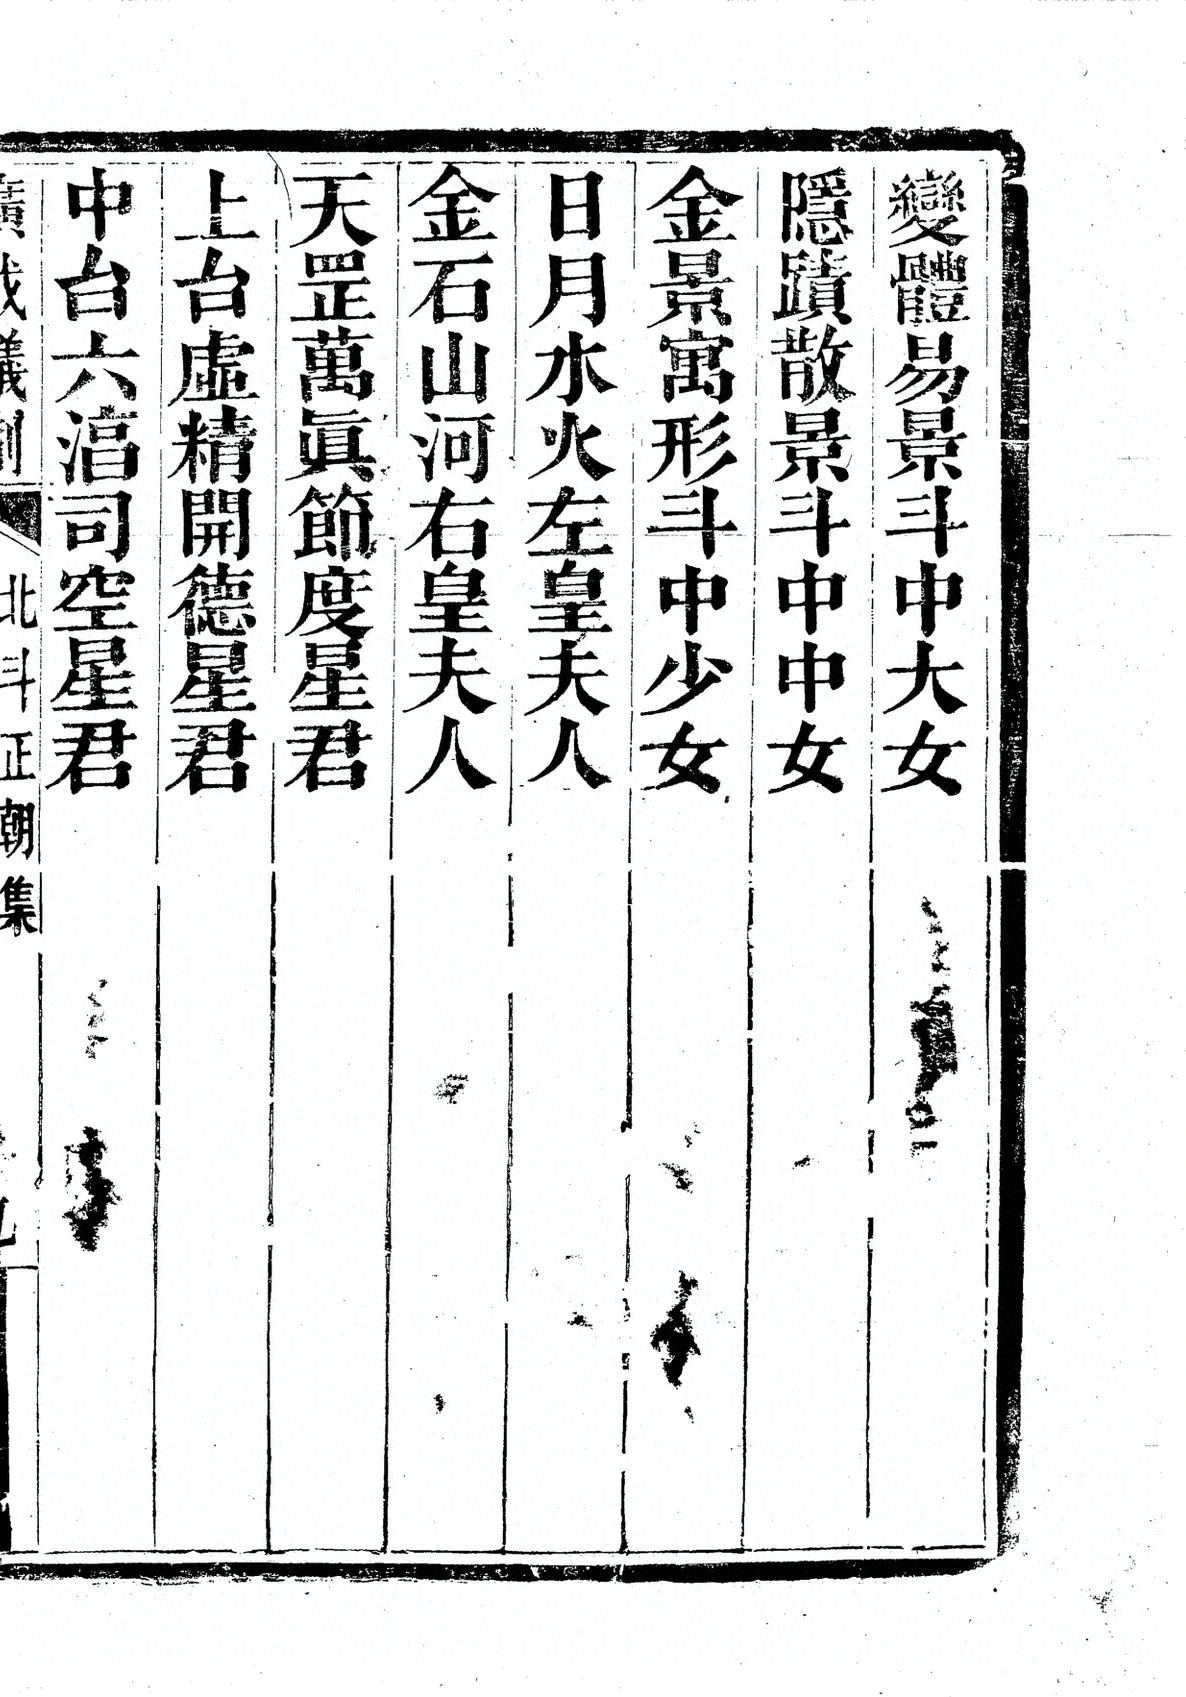 變體易景斗中大女
隱蹟散景斗中中女
金景寓形斗中少女
日月水火左皇夫人
金石山河右皇夫人
天罡萬眞節度星君
上台虛精開德星君
中台六淊司空星君
廣成儀制
北斗正朝集
九